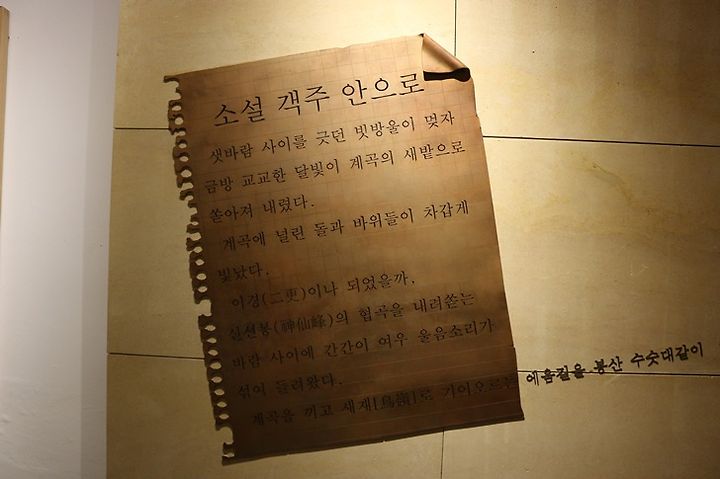 소설 객주 안으로
샛바람 사이를 긋던 빗방울이 멎자
금방 교교한 달빛이 계곡의 새밭으로
쏟아져 내렸다.
계곡에 널린 돌과 바위들이 차갑게
빛났다.
이경(二更)이나 되었을까.
신선봉(神仙峰)의 협곡을 내려쏟는
바람 사이에 간간이 여우 울음소리가
섞여 들려왔다.
계곡을 끼고 새재[鳥嶺]로 기어오르는 에움길을 봉산 수숫대같이